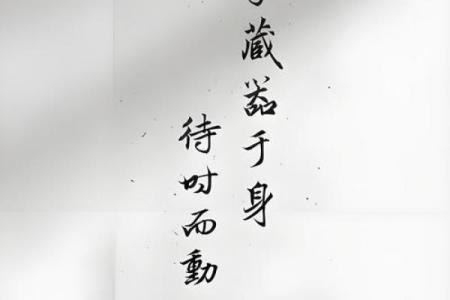 藏器于身
待时而動